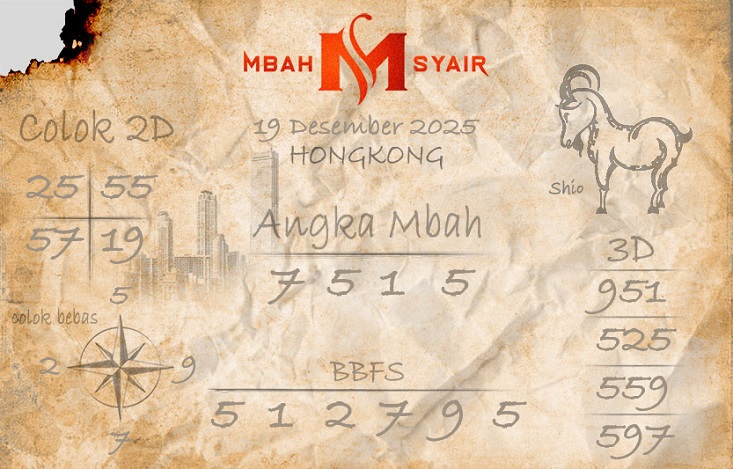 MBAH M SYAIR
Colok 2D
25 55
57 19
19 Desember 2025
HONGKONG
Shio
Angka Mbah
7 5 1 5
3D
951
525
559
597
colok bebas
5
2 9
7
BBFS
5 1 2 7 9 5